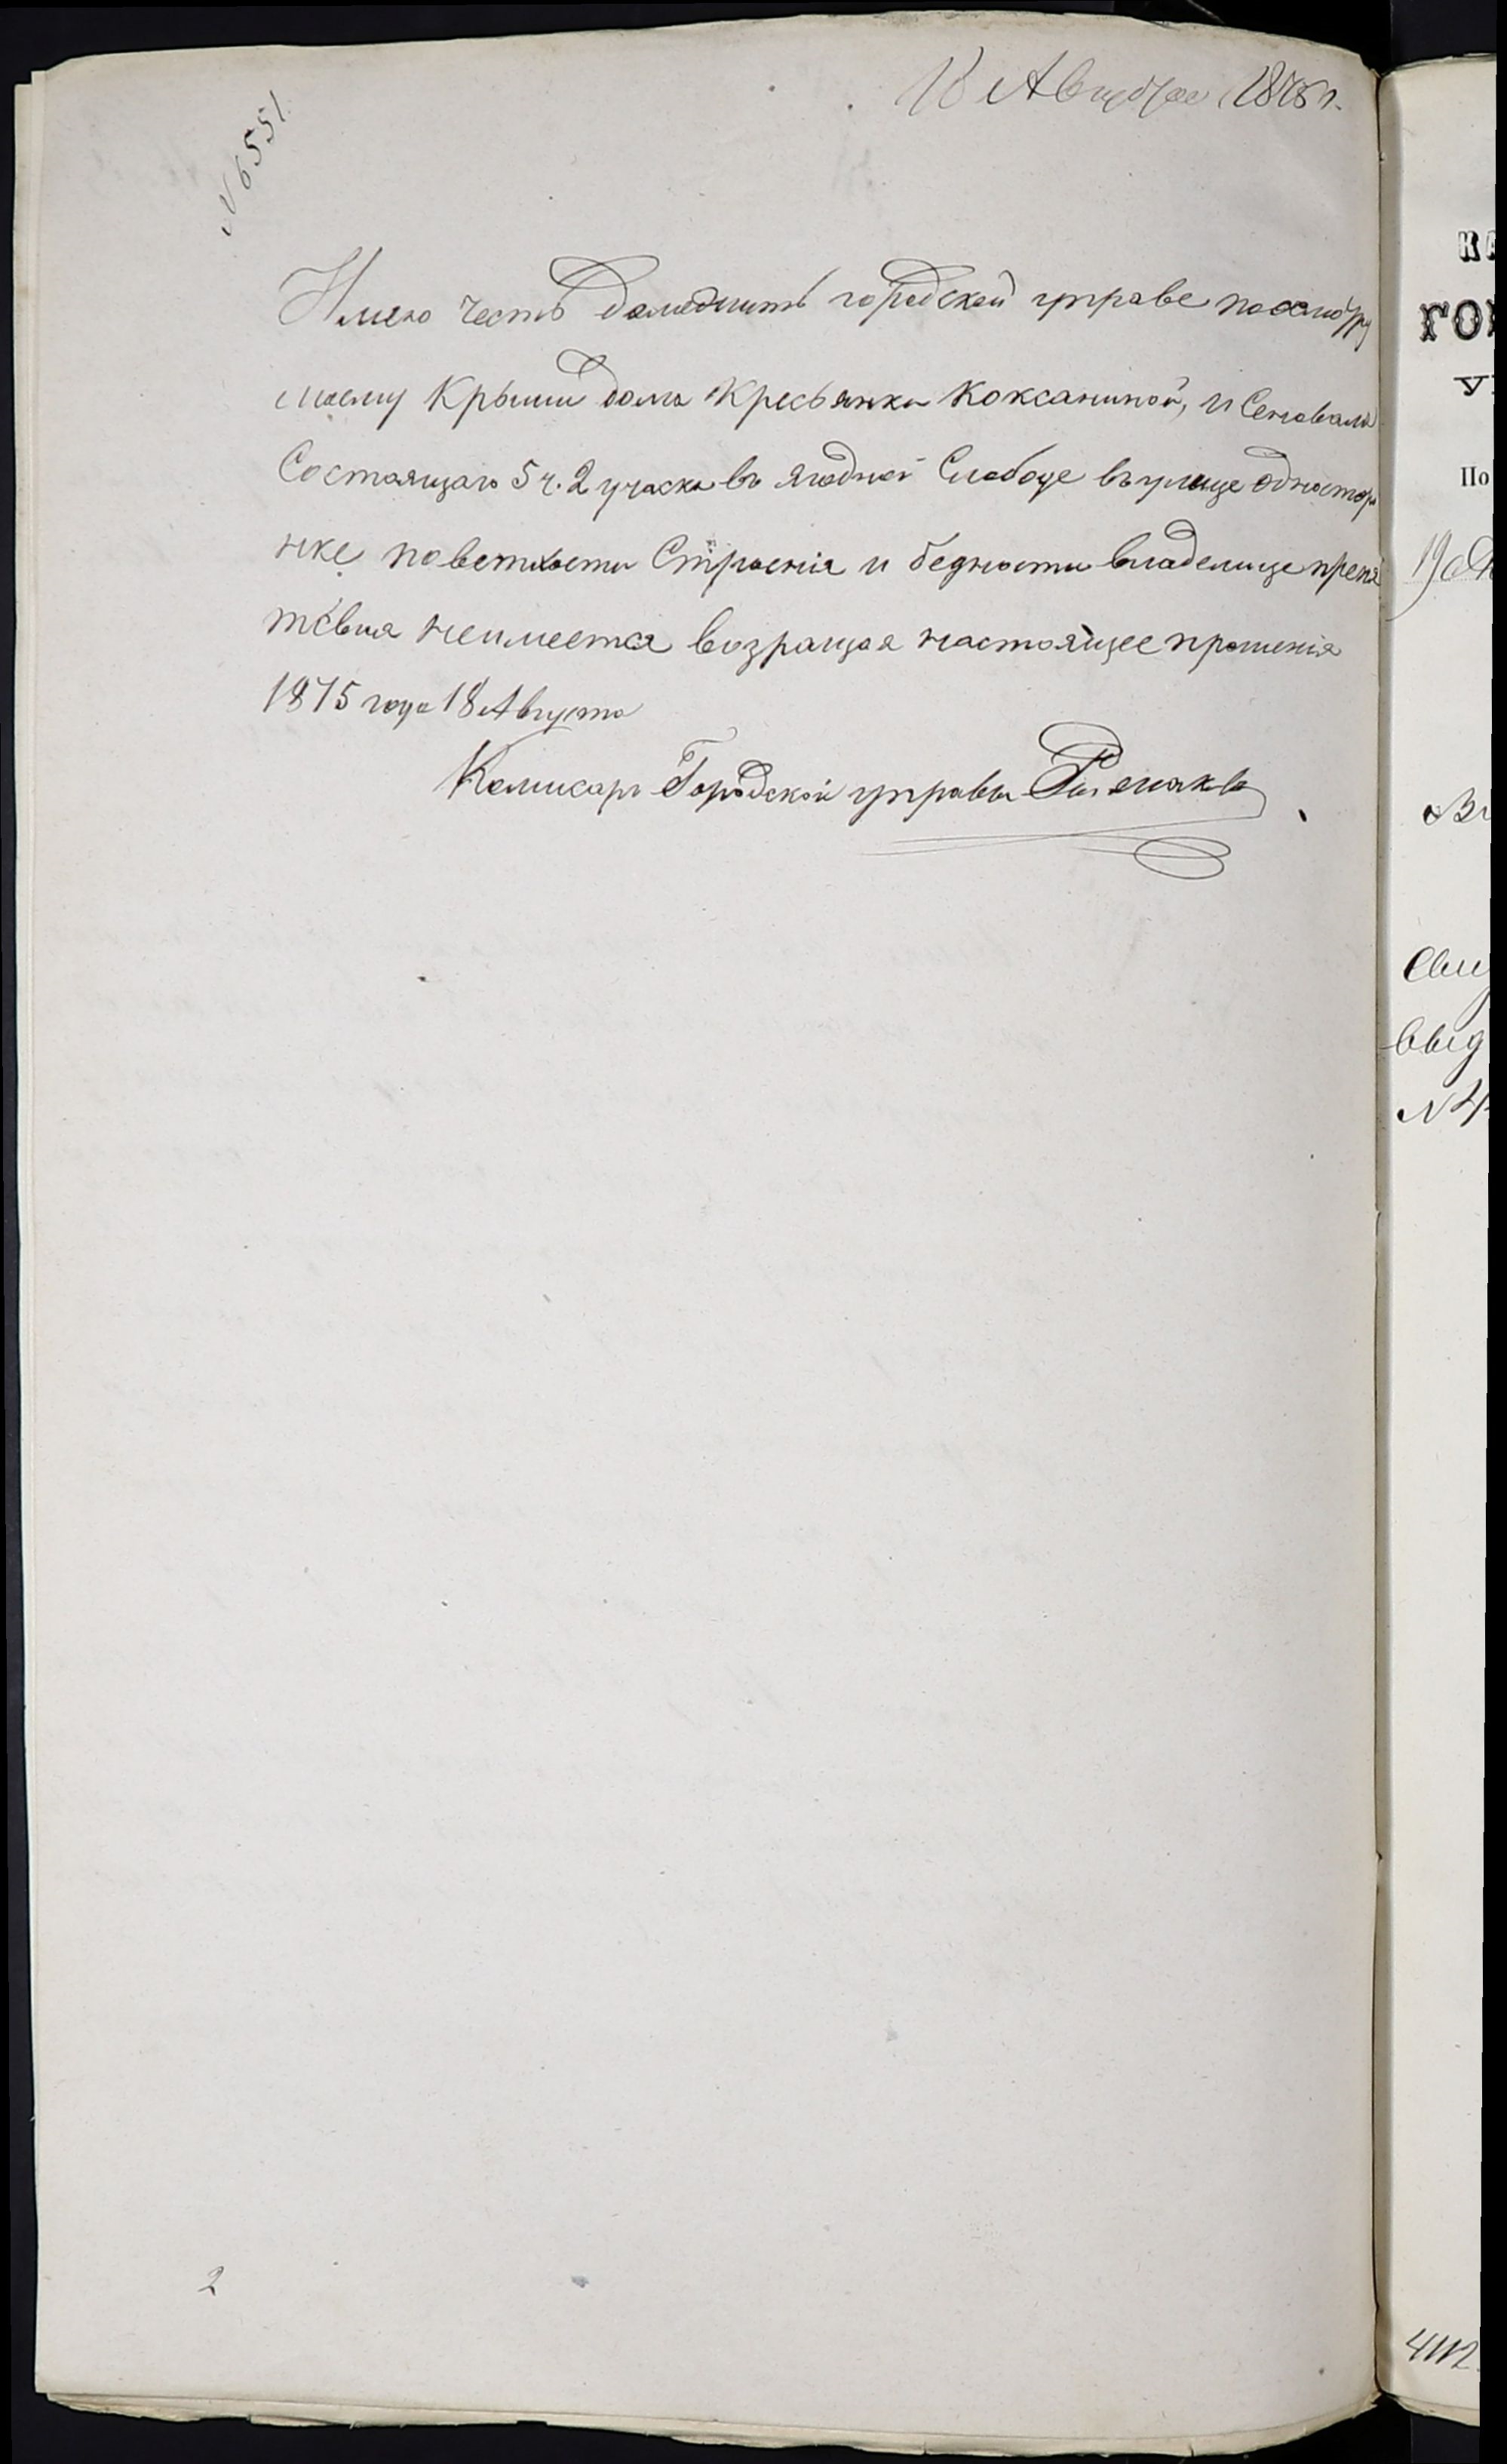 18 Августа 1875 г.
№ 6551.
Имею честь доложить городской управе по осмотру
моему крыши дома кресьянки Коксаниной, и Сеновала
Состоящаго 5 ч. 2 участка въ Ягодной Слободе въ улице одностор
нке по ветхости Строенія и бедности владелице препя
тсвия неимеется возращая настоящее прошенія
1875 года 18 Августа
Комисаръ Городской управы
2
КА
ГОР
У
По
19
Сви
выд
№ 4